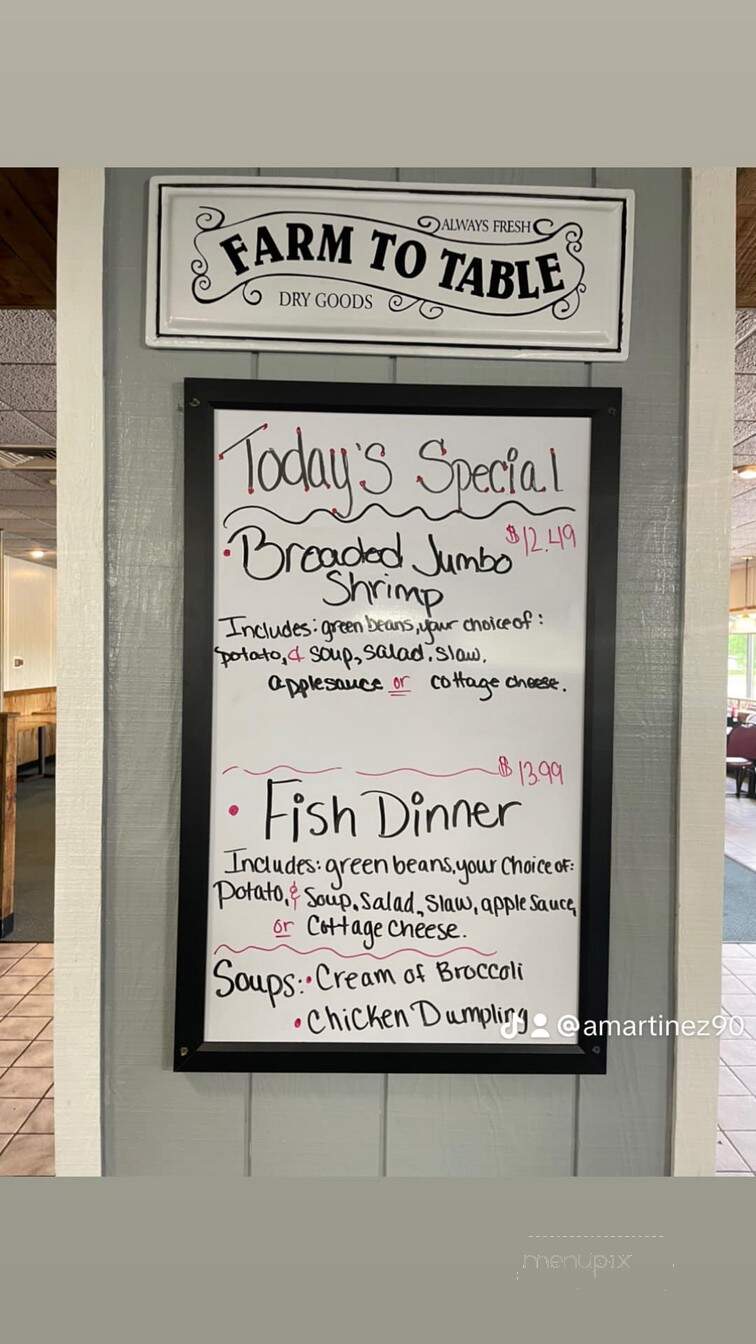 ALWAYS FRESH
FARM TO TABLE
DRY GOODS
Today's Special
• Breaded Jumbo $12.49
Shrimp
Includes: green beans, your choice of:
potato, & soup, salad, slaw,
applesauce or cottage cheese.
$13.99
• Fish Dinner
Includes: green beans, your choice of:
Potato, & Soup, Salad, Slaw, apple sauce,
or Cottage Cheese.
Soups: • Cream of Broccoli
• Chicken Dumpling
@amartinez90
menupix